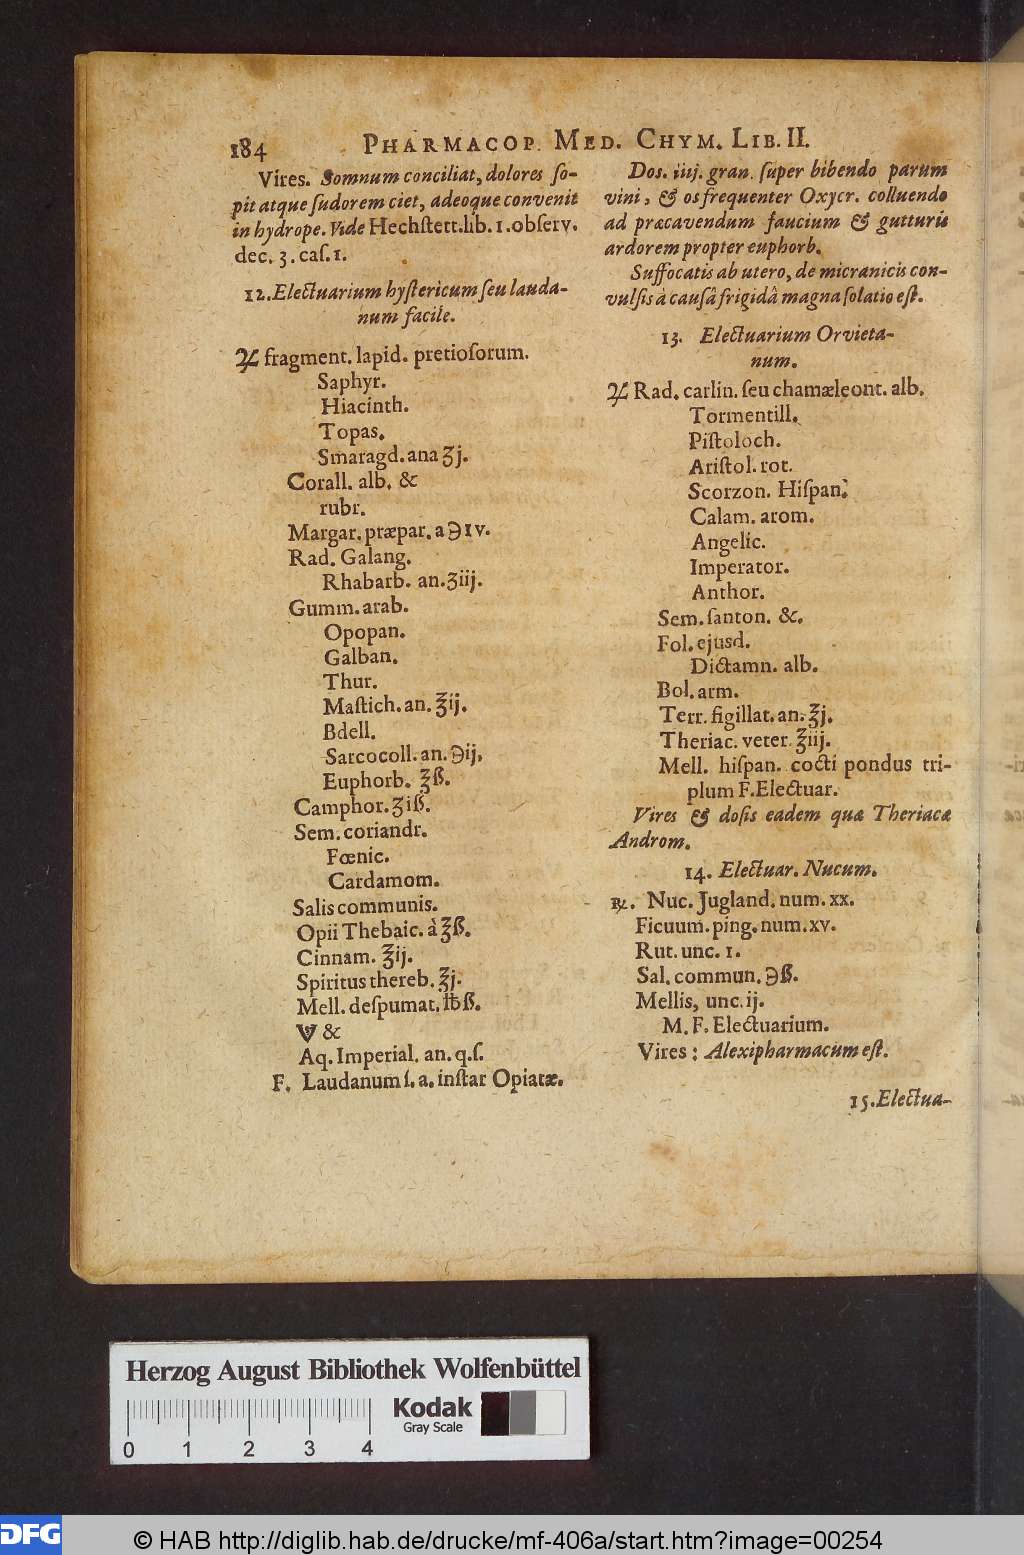 184 PHARMACOP. MED. CHYM. LIB. II.
Vires. Somnum conciliat, dolores ſo-
pit atque ſudorem ciet, adeoque convenit
in hydrope. Vide Hechſtett. lib. 1. obſerv.
dec. 3. caſ. 1.
12. Electuarium hyſtericum ſeu lauda-
num facile.
♃ fragment. lapid. pretioſorum.
Saphyr.
Hiacinth.
Topas.
Smaragd. ana ʒj.
Corall. alb. &
rubr.
Margar. præpar. a ℈ıv.
Rad. Galang.
Rhabarb. an. ʒiij.
Gumm. arab.
Opopan.
Galban.
Thur.
Maſtich. an. ℥ij.
Bdell.
Sarcocoll. an. ℈ij.
Euphorb. ℥ß.
Camphor. ʒiß.
Sem. coriandr.
Fœnic.
Cardamom.
Salis communis.
Opii Thebaic. à ℥ß.
Cinnam. ℥ij.
Spiritus thereb. ℥j.
Mell. deſpumat. ℔ß.
&
Aq. Imperial. an. q. ſ.
F. Laudanum ſ. a. inſtar Opiatæ.
Dos. iiij. gran. ſuper bibendo parum
vini, & os frequenter Oxycr. colluendo
ad præcavendum faucium & gutturis
ardorem propter euphorb.
Suffocatis ab utero, de micranicis con-
vulſis à cauſâ frigidâ magna ſolatio eſt.
13. Electuarium Orvieta-
num.
♃ Rad. carlin. ſeu chamæleont. alb.
Tormentill.
Piſtoloch.
Ariſtol. rot.
Scorzon. Hiſpan.
Calam. arom.
Angelic.
Imperator.
Anthor.
Sem. ſanton. &.
Fol. ejusd.
Dictamn. alb.
Bol. arm.
Terr. ſigillat. an. ℥j.
Theriac. veter. ℥iij.
Mell. hiſpan. cocti pondus tri-
plum F. Electuar.
Vires & doſis eadem quæ Theriacæ
Androm.
14. Electuar. Nucum.
℞. Nuc. Jugland. num. xx.
Ficuum. ping. num. xv.
Rut. unc. 1.
Sal. commun. ℈ß.
Mellis, unc. ij.
M. F. Electuarium.
Vires: Alexipharmacum eſt.
15. Electua-
Herzog August Bibliothek Wolfenbüttel
Kodak
Gray Scale
0 1 2 3 4
DFG
© HAB http://diglib.hab.de/drucke/mf-406a/start.htm?image=00254